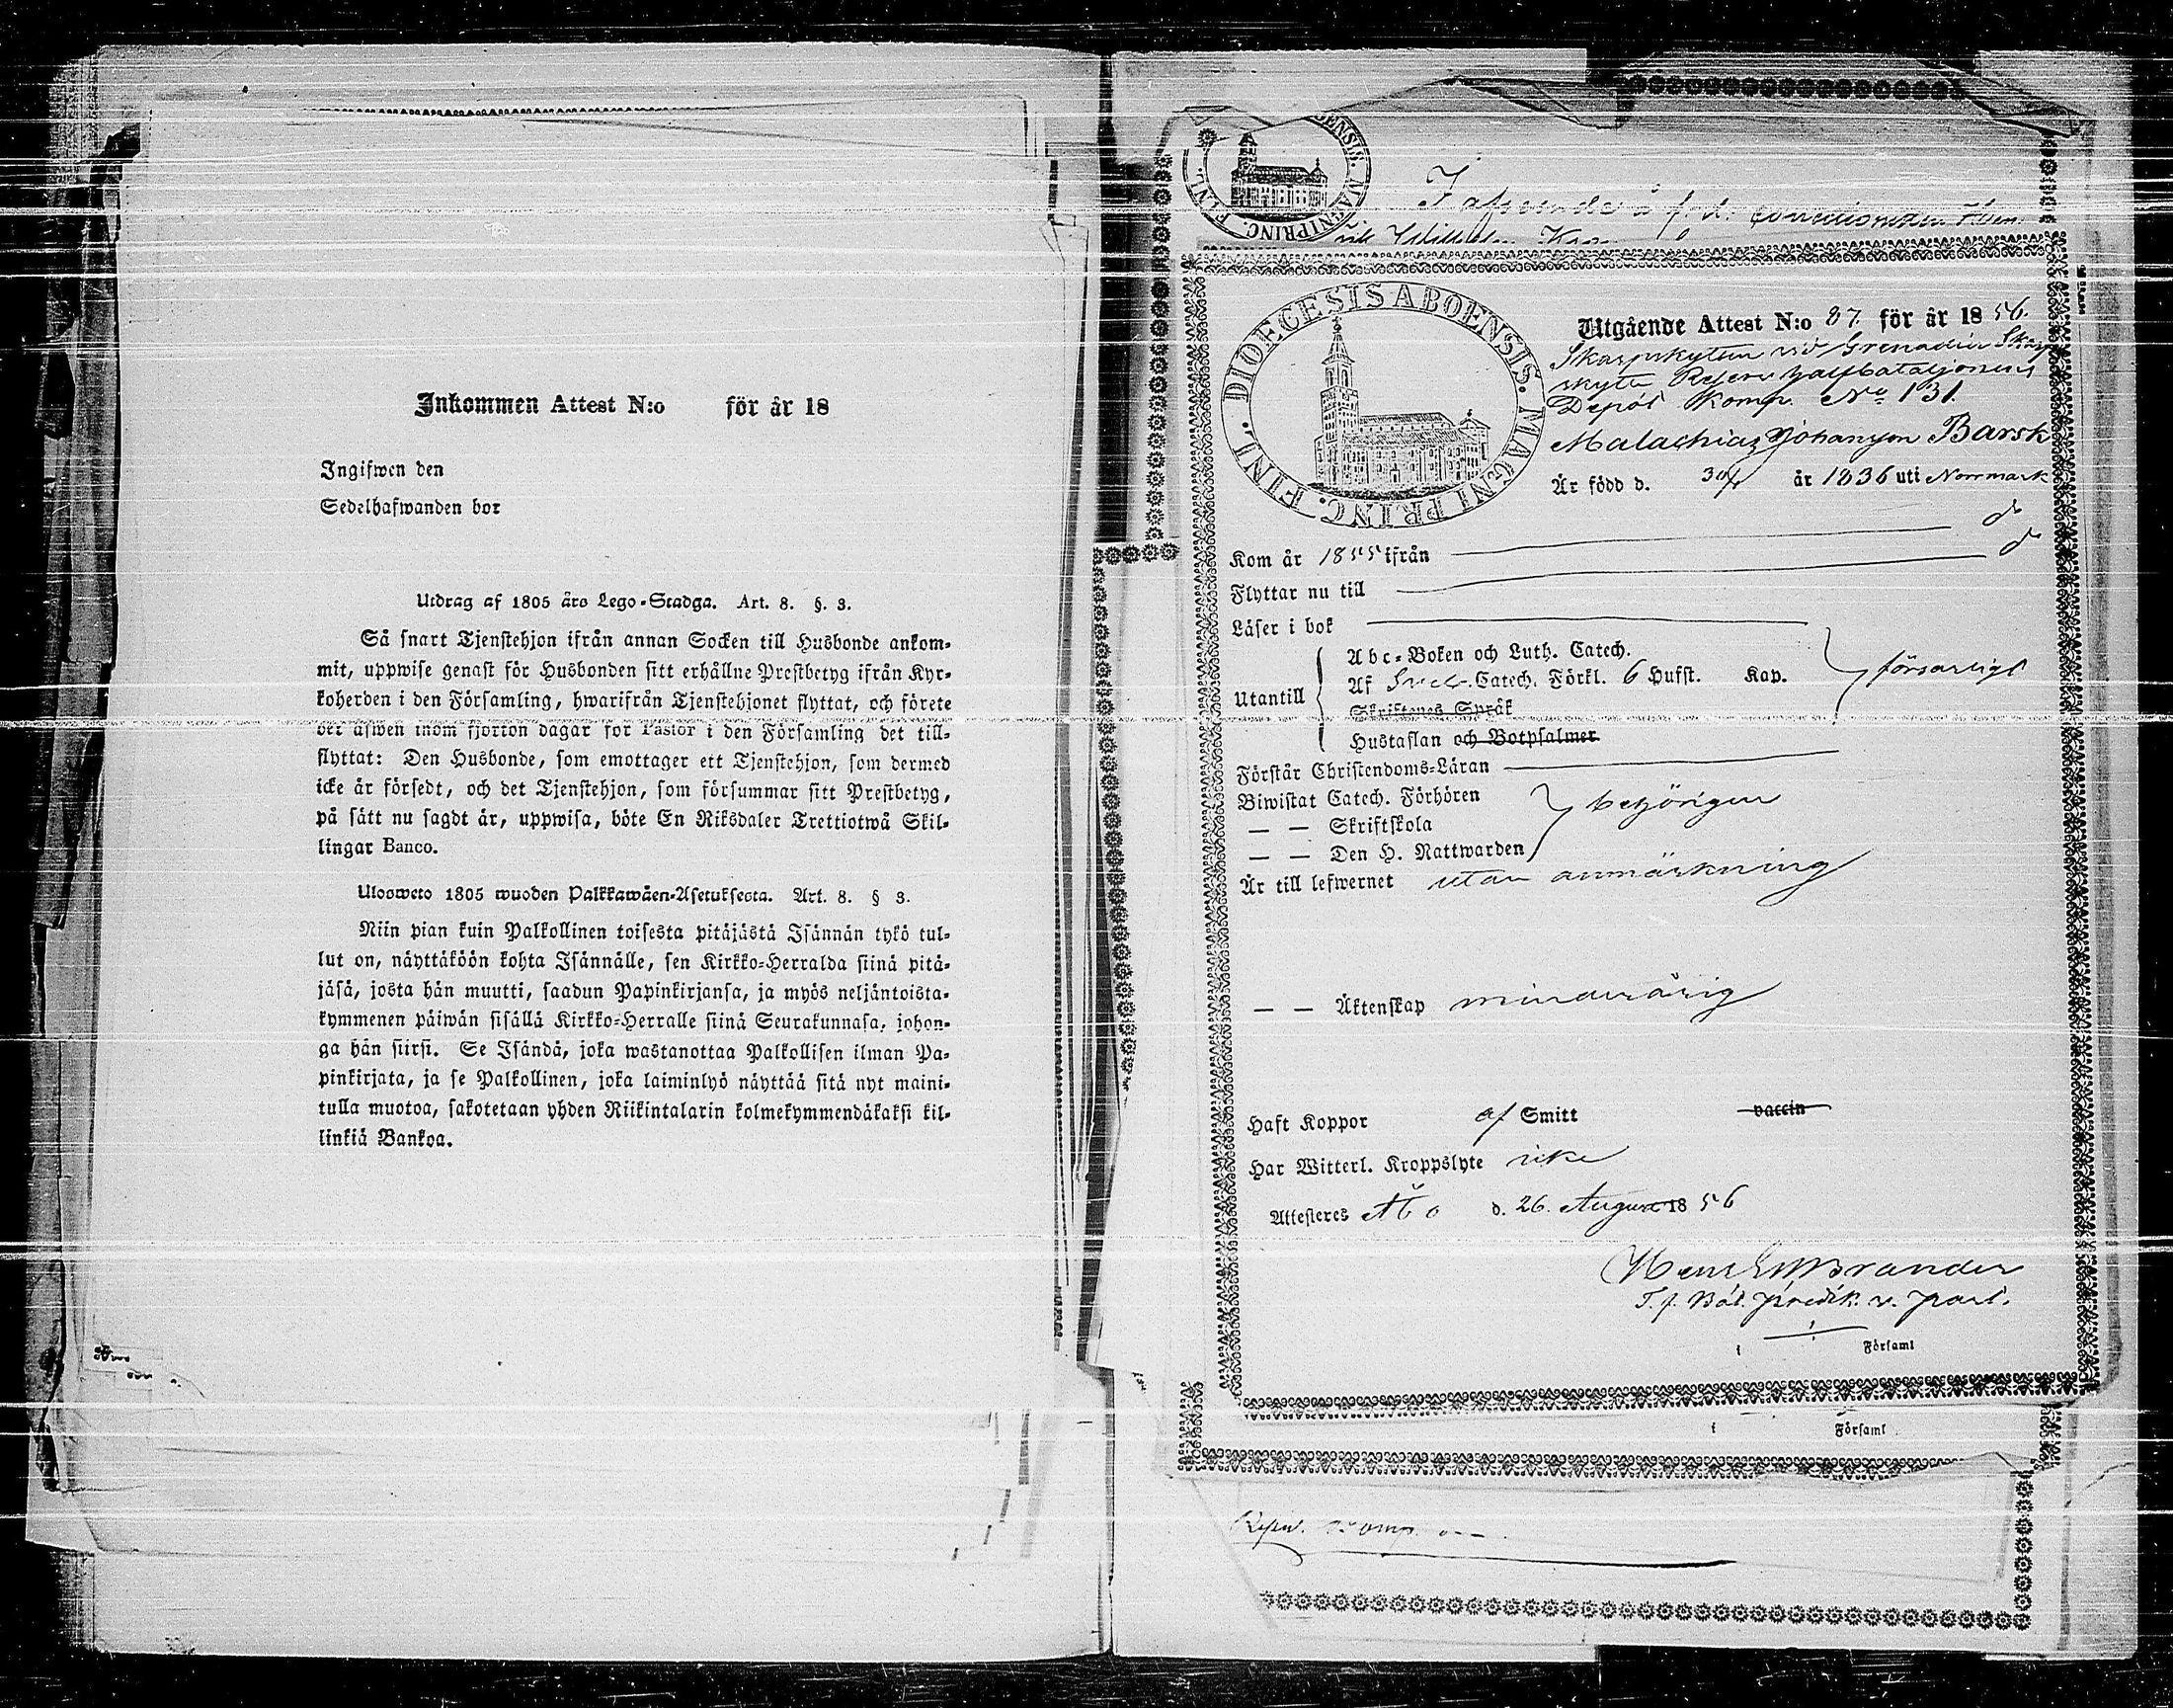 Inkommen Attest N:o för år 18
Ingifwen den
Sedelhafwanden bor
Utdrag af 1805 års Lego-Stadga. Art. 8. §. 3.
Så snart Tjenstehjon ifrån annan Socken till Husbonde ankom-
mit, uppwise genast för Husbonden sitt erhållne Prestbetyg ifrån Kyr-
koherden i den Församling, hwarifrån Tjenstehjonet flyttat, och förete
det äfwen inom fjorton dagar för Pastor i den Församling det till-
flyttat: Den Husbonde, som emottager ett Tjenstehjon, som dermed
icke är försedt, och det Tjenstehjon, som försummar sitt Prestbetyg,
på sätt nu sagdt är, uppwisa, böte En Riksdaler Trettiotwå Skil-
lingar Banco.
Ulosweto 1805 wuoden Palkkawäen-Asetuksesta. Art. 8. § 3.
Niin pian kuin Palkollinen toisesta pitäjästä Isännän tykö tul-
lut on, näyttäköön kohta Isännälle, sen Kirkko-Herralda siinä pitä-
jäsä, josta hän muutti, saadun Papinkirjansa, ja myös neljäntoista-
kymmenen päiwän sisällä Kirkko-Herralle siinä Seurakunnasa, johon-
ga hän siirsi. Se Isändä, joka wastanottaa Palkollisen ilman Pa-
pinkirjata, ja se Palkollinen, joka laiminlyö näyttää sitä nyt maini-
tulla muotoa, sakotetaan yhden Riikintalarin kolmekymmendäkaksi kil-
linkiä Bankoa.
DIOECESIS ABOENSIS. MAGNI PRINC. FINL.
Utgående Attest N:o 87. för år 1856.
Skarpskytten vid Grenadier Skarp
skytte Reserv halfbataljonens
Depôt Komp. No 131
Malachias Johansson Barsk
Är född d. 30/ år 1836 uti Norrmark
Kom år 1855 ifrån do
Flyttar nu till do
Läser i bok
Abc-Boken och Luth. Catech.
Utantill Af Sveb. Catech. Förkl. 6 Hufst. Kap. försvarligt
Skriftenes Språk
Hustaflan och Botpsalmer
Förstår Christendoms-Läran
Biwistat Catech. Förhören behörigen
— — Skriftskola
— — Den H. Nattwarden
Är till lefwernet utan anmärkning
— — Äktenskap minderårig
Haft Koppor af Smitt vaccin
Har Witterl. Kroppslyte icke
Attesteras Åbo d. 26. August 1856
Brander
T. f. Bat. predik. v. past.
i Församl
i Församl